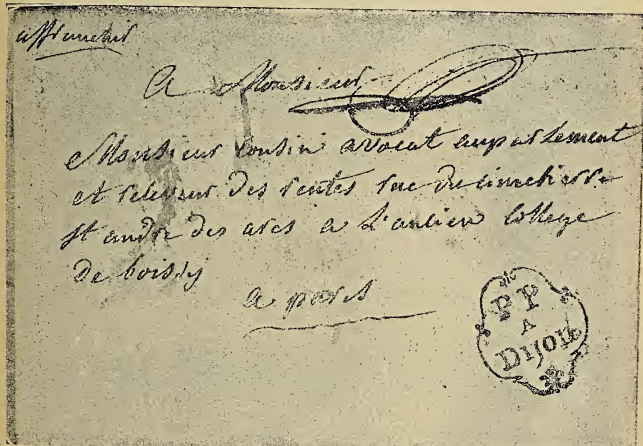 affranchir
A Monsieur
Monsieur Cousin avocat auparlement
et releveur des rentes rue du cimetierre
st andre des arcs a L'antien College
de boissy
a paris
P P
A
Dijon